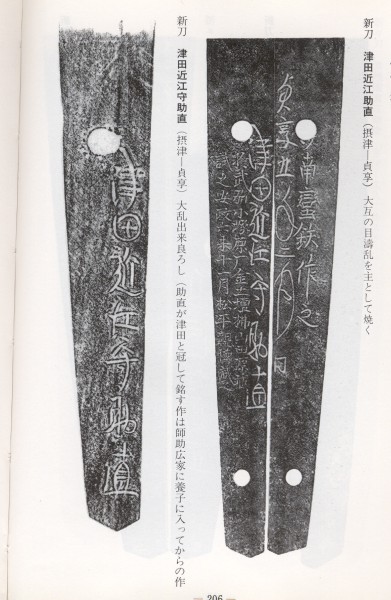 新刀　津田近江助直（摂津―貞享）大互の目濤乱を主として焼く
南蛮鉄作之
貞享
日
津田近江守助直
新刀　津田近江守助直（摂津―貞享）大乱出来良ろし（助直が津田と冠して銘す作は師助広家に養子に入ってからの作
津田近江守助直
― 206 ―